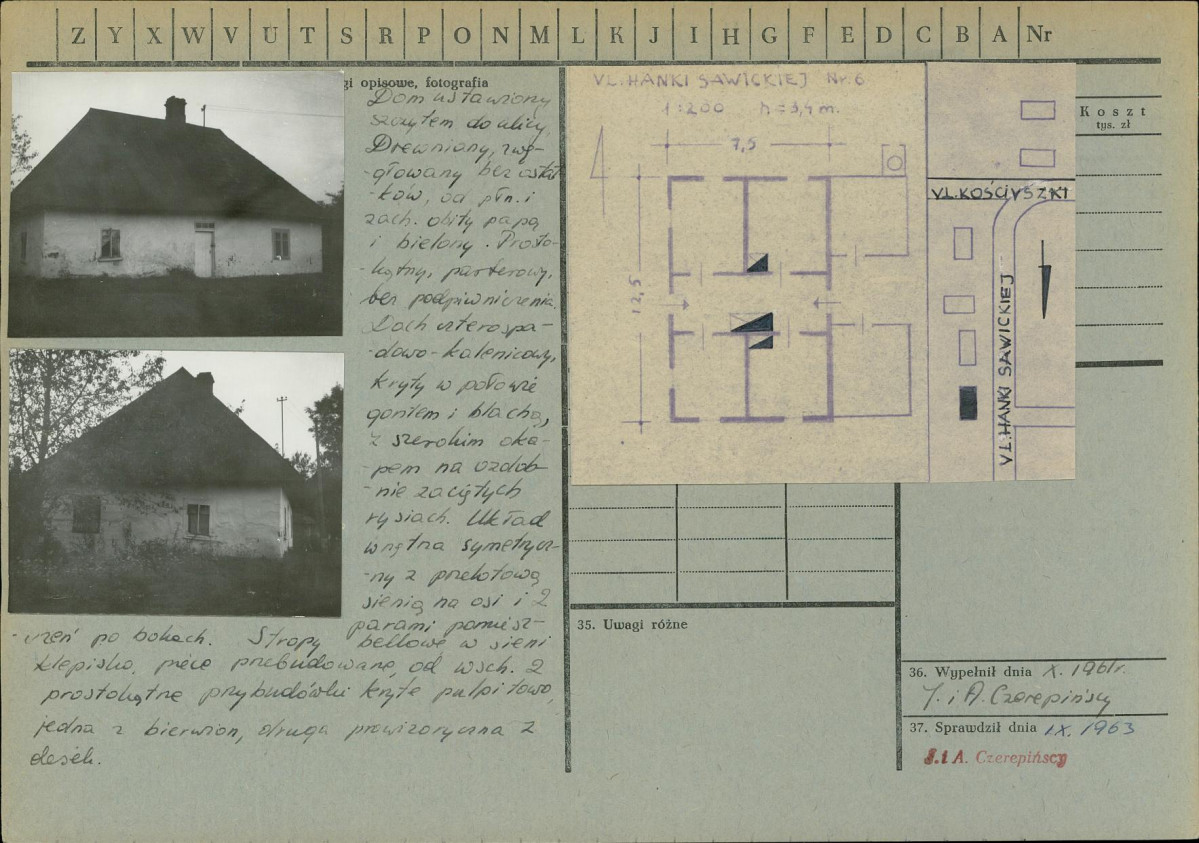 Z Y X W V U T S R P O N M L K J I H G F E D C B A Nr
gi opisowe, fotografia
Dom ustawiony
szczytem do ulicy.
Drewniany, zwę-
-głowany bez ostat-
-ków, od płn. i
zach. obity papą
i bielony. Prosto-
-kątny, parterowy,
bez podpiwniczenia.
Dach czterospa-
-dowo-kalenicowy,
kryty w połowie
gontem i blachą,
z szerokim oka-
-pem na ozdob-
-nie zaciętych
rysiach. Układ
wnętrza symetrycz-
-ny z przelotową
sienią na osi i 2
parami pomiesz-
-czeń po bokach. Stropy belkowe w sieni
klepisko, piece przebudowane, od wsch. 2
prostokątne przybudówki kryte pulpitowo,
jedna z bierwion, druga prowizoryczna z
desek.
UL. HANKI SAWICKIEJ Nr. 6
1:200 h=3,4 m.
7,5
12,5
UL. KOŚCIUSZKI
UL. HANKI SAWICKIEJ
Koszt
tys. zł
35. Uwagi różne
36. Wypełnił dnia X. 1961r.
J. i A. Czerepińscy
37. Sprawdził dnia IX. 1963
J. i A. Czerepińscy